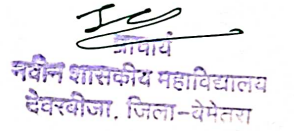 प्राचार्य
नवीन शासकीय महाविद्यालय
देवरबीजा, जिला-बेमेतरा